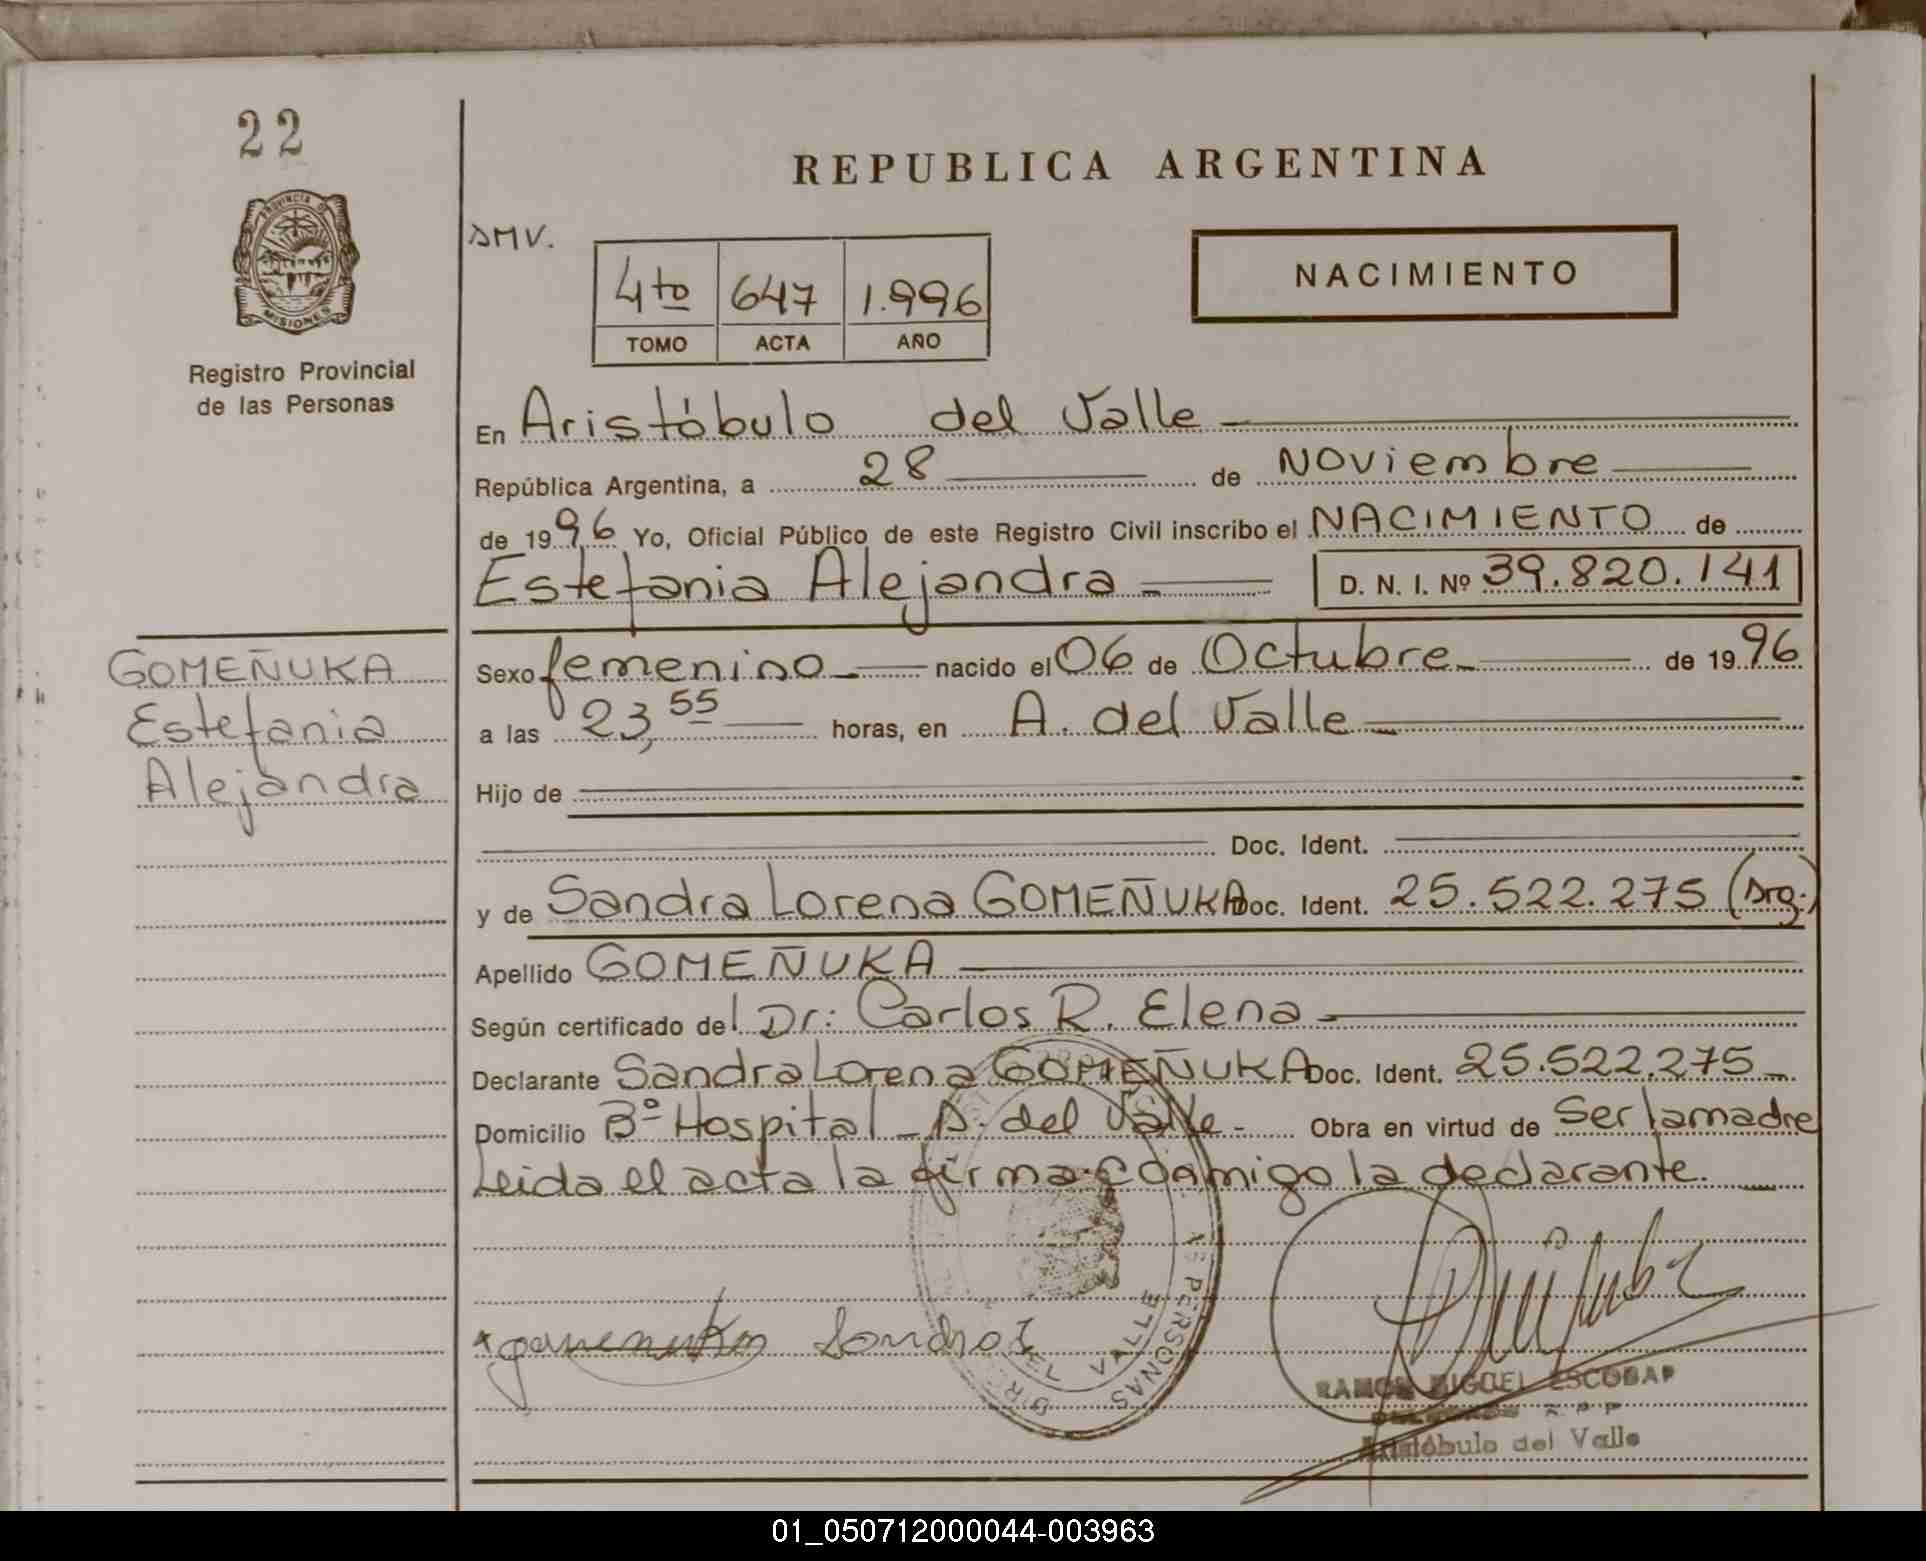 22
PROVINCIA DE
MISIONES
Registro Provincial
de las Personas
REPUBLICA ARGENTINA
4to 647 1.996
TOMO ACTA AÑO
NACIMIENTO
En Aristóbulo del Valle
República Argentina, a 28 de Noviembre
de 1996 Yo, Oficial Público de este Registro Civil inscribo el NACIMIENTO de
Estefania Alejandra D. N. I. Nº 39.820.141
GOMEÑUKA
Estefania
Alejandra
Sexo femenino nacido el 06 de Octubre de 1996
a las 23,55 horas, en A. del Valle
Hijo de
Doc. Ident.
y de Sandra Lorena GOMEÑUKA Doc. Ident. 25.522.275 (Arg.)
Apellido GOMEÑUKA
Según certificado del Dr: Carlos R. Elena
Declarante Sandra Lorena GOMEÑUKA Doc. Ident. 25.522.275
Domicilio Bº Hospital - A. del Valle - Obra en virtud de Ser la madre
Leida el acta la firma conmigo la declarante.
Sandra
DEL VALLE
PERSONAS
RAMON MIGUEL ESCOBAR
Aristóbulo del Valle
01_050712000044-003963